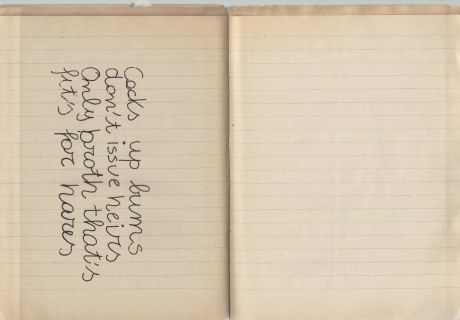 Cocks up bums
don't issue heirs
Only broth that's
fit's for hares